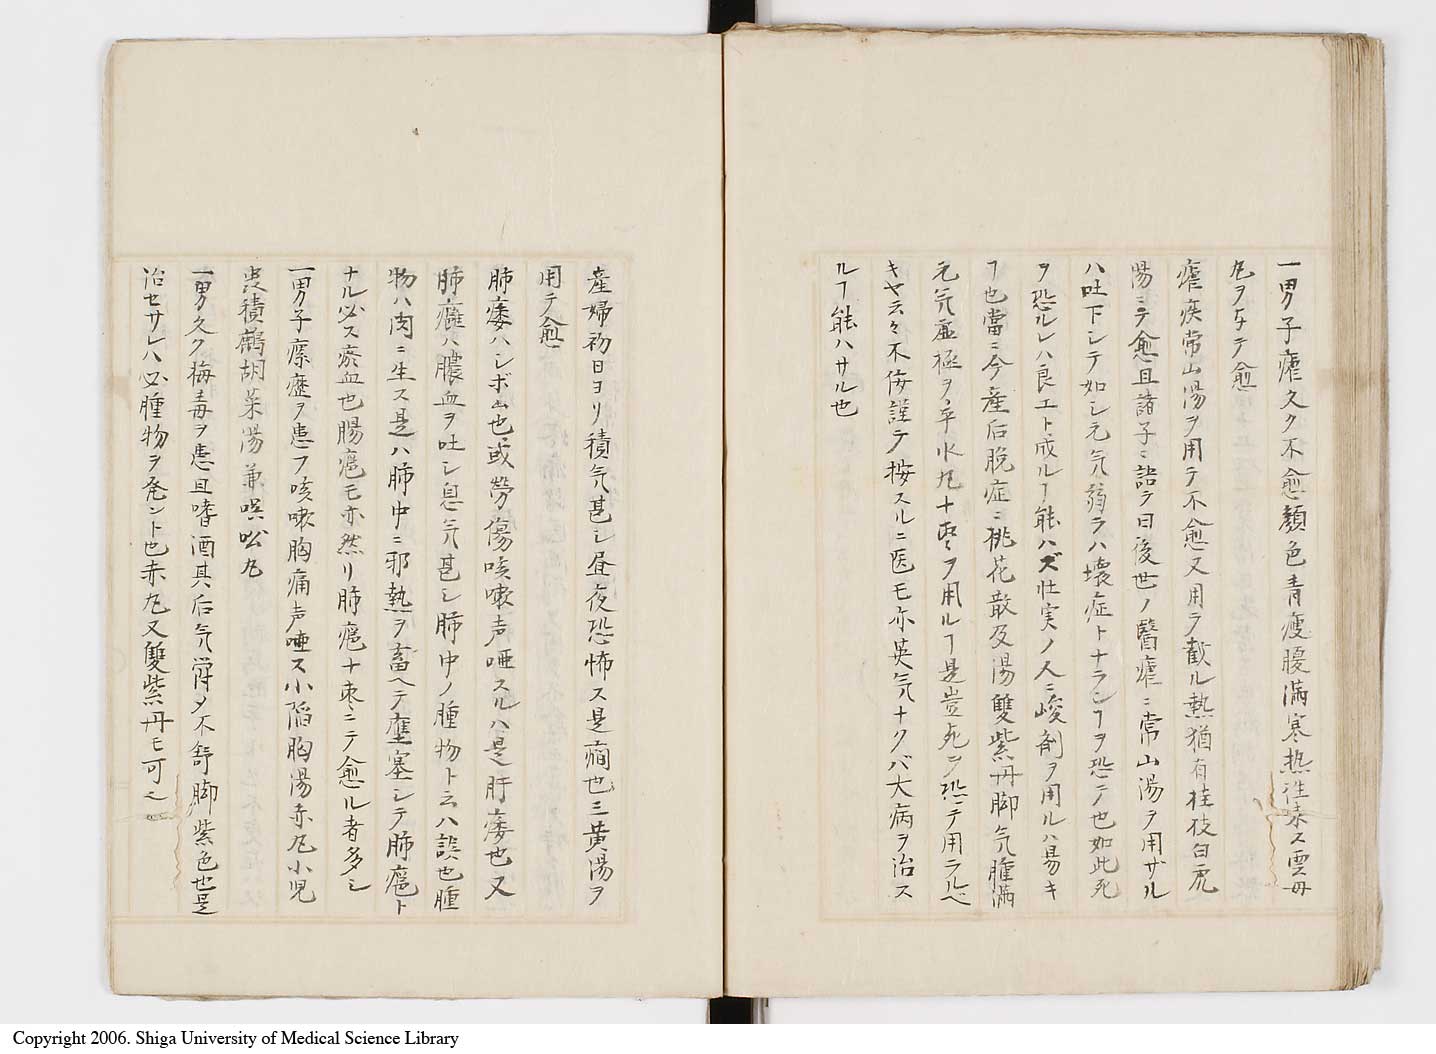 一男子瘧久ク不愈顔色青瘦腹満寒熱往来ス雲母
丸ヲ与テ愈
瘧疾常山湯ヲ用テ不愈又用ラ截ル熱猶有桂枝白虎
湯ニテ愈且諸子ニ語ラ曰後世ノ醫瘧ニ常山湯ヲ用ザル
ハ吐下シテ如シ元気弱ラハ壊症トナランヿヲ恐テ也如此死
ヲ恐ルレハ良エト成ルヿ能ハズ壮実ノ人ニ峻剤ヲ用ルハ易キ
ヿ也當ニ今産后脱症ニ桃花散及湯雙紫丹脚気腫満
元気虚極ヲ辛水丸十枣ヲ用ルヿ是豈死ヲ恐テ用ラルベ
キヤ云々不侫謹テ按スルニ医モ亦英気ナクバ大病ヲ治ス
ルヿ能ハサル也
産婦初日ヨリ積気甚シ昼夜恐怖ス是癇也三黄湯ヲ
用テ愈
肺痿ハシボム也或労傷咳嗽声唖スルハ是肝痿也又
肺癰ハ膿血ヲ吐シ息気甚シ肺中ノ腫物ト云ハ誤也腫
物ハ肉ニ生ス是ハ肺中ニ邪熱ヲ畜ヘテ壅塞シテ肺癰ト
ナル必ス瘀血也腸癰モ亦然リ肺癰十枣ニテ愈ル者多シ
一男子瘰癧ヲ患フ咳嗽胸痛声唖ス小陥胸湯赤丸小児
患積鷓胡菜湯兼呉蚣丸
一男久ク梅毒ヲ患且嗜酒其后気欝メ不舒脚紫色也是
治セサレハ必腫物ヲ発ント也赤丸又雙紫丹モ可之
Copyright 2006. Shiga University of Medical Science Library